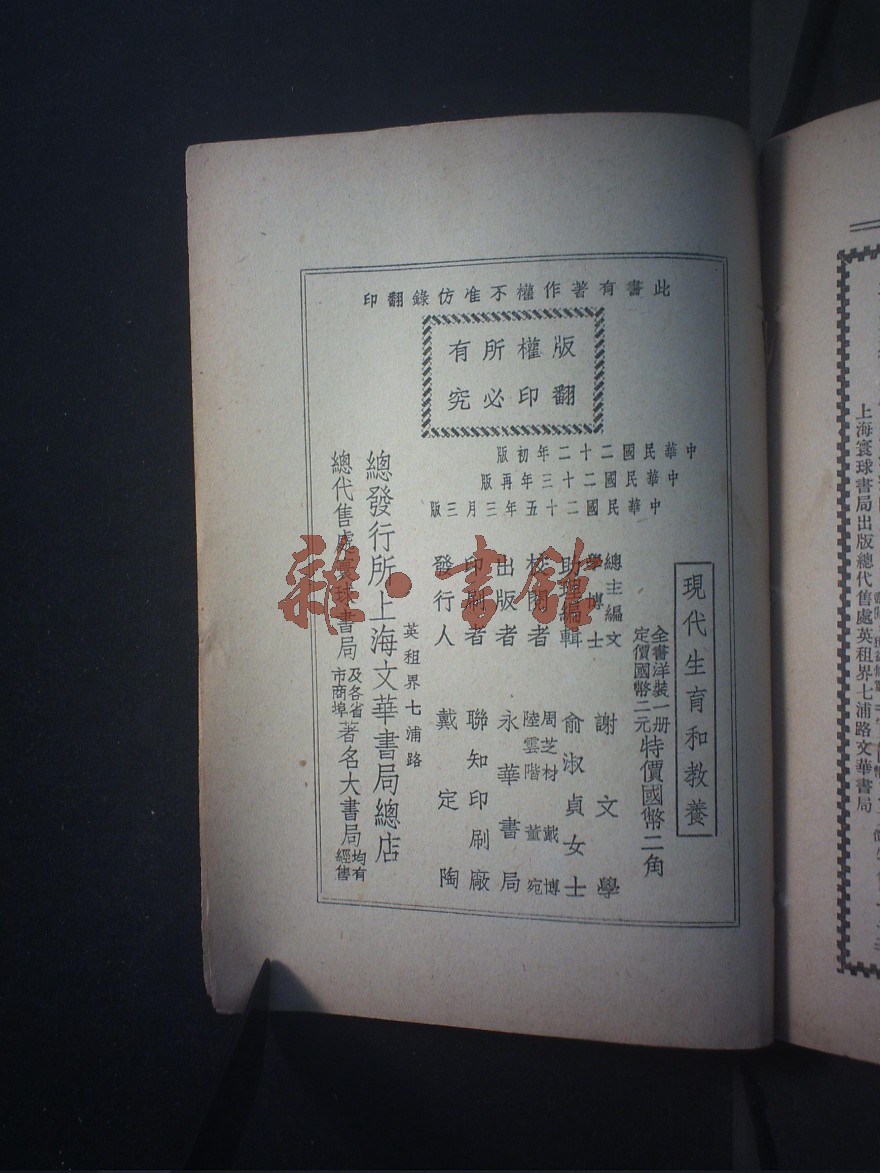 此書有著作權不准仿錄翻印
版權所有
翻印必究
中華民國二十二年初版
中華民國二十三年再版
中華民國二十五年三月三版
現代生育和教養
全書洋裝一册
定價國幣二元
特價國幣二角
總主編文學博士 謝文學
助理編輯 俞淑貞女士
校閱者 周芝材 戴博
陸雲階 董宛
出版者 永華書局
印刷者 聯知印刷廠
發行人 戴定陶
英租界七浦路
總發行所上海文華書局總店
總代售處寰球書局及各省市商埠著名大書局均有經售
雜·書館
上海寰球書局出版總代售處英租界七浦路文華書局